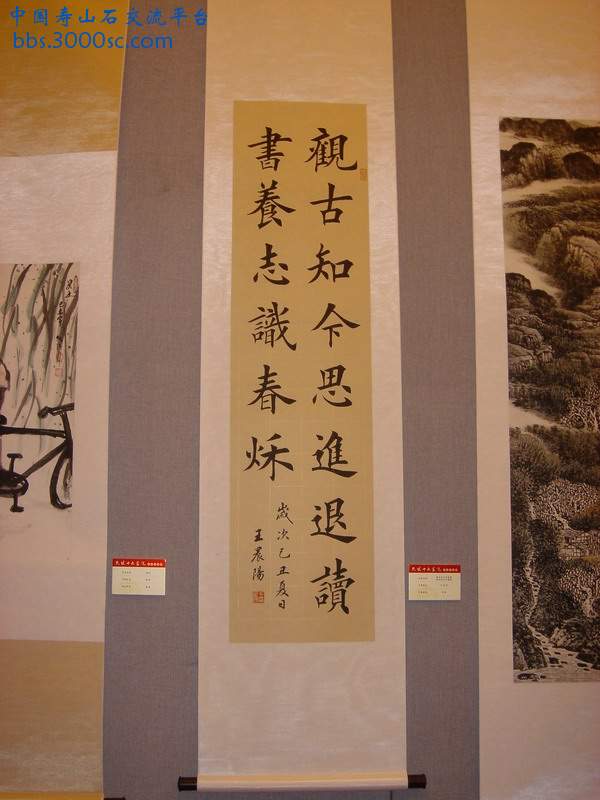 中国寿山石交流平台
bbs.3000sc.com
觀古知今思進退讀
書養志識春秌
歲次己丑夏日
王晨陽